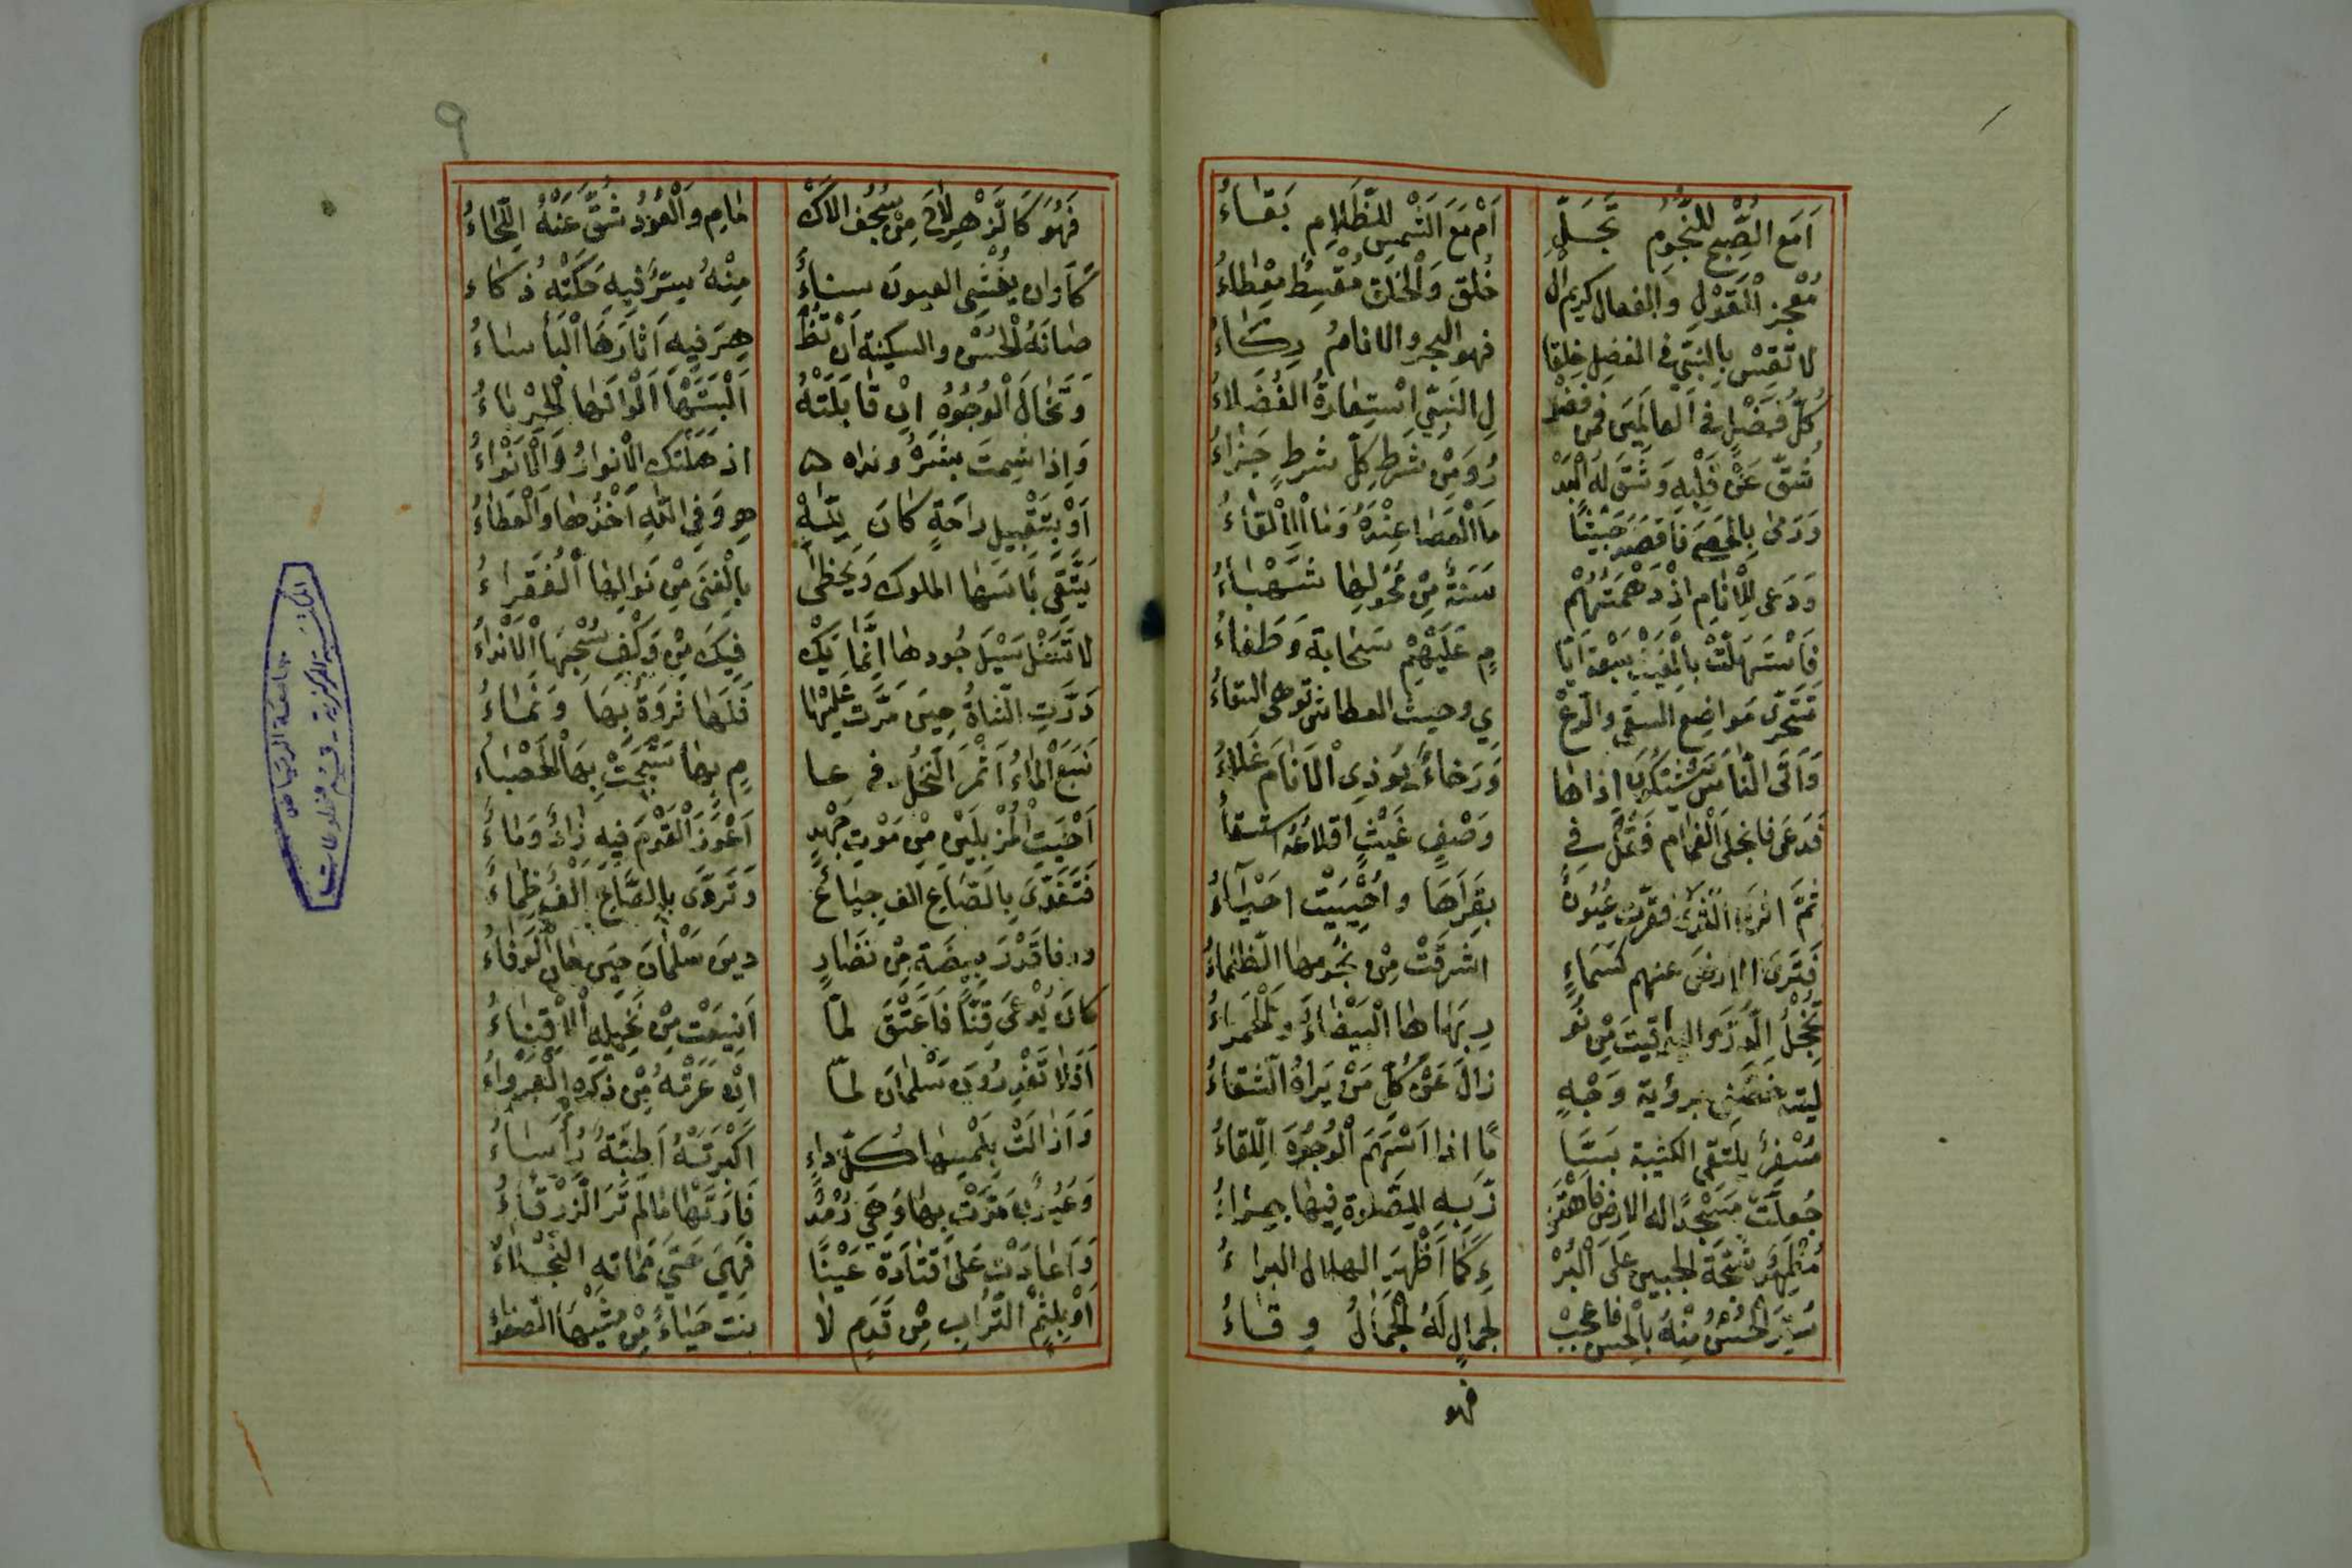 اَمَعَ الصُّبْحِ لِلنُّجُومِ تَجَلٍّ اَمْ مَعَ الشَّمْسِ لِلظَّلَامِ بَقَاءُ
مُعْجِزُ الْقَوْلِ والفعال كريم الْ خُلْقِ وَالْخَلْقِ مُقْسِطٌ مِعْطَاءُ
لا تَقِسْ بِالنَّبِيِّ في الفضل خلقا فهو البحر والانامُ اِضَاءُ
كُلُّ فَضْلٍ فِي الْعَالَمِينَ فمن فضْ لِ النَّبِيِّ اسْتِعَارَةُ الْفُضَلَاءُ
شُقَّ عَنْ قَلْبِهِ وَشُقَّ لَهُ الْبَدْ رُ وَمِنْ شَرْطِ كُلِّ شرطٍ جَزَاءُ
وَرَمَى بِالْحَصَى فَاَقْصَدَ جَيْشًا مَا الْعَصَا عِنْدَهُ وَمَا الْاِلْقَاءُ
وَدَعَى لِلْاَنَامِ اِذْ دَهَمَتْهُمْ سَنَةٌ مِنْ مُحُولِهَا شَهْبَاءُ
فَاسْتَهَلَّتْ بِالْغَيْثِ سَبْعَةَ اَيَّا مٍ عَلَيْهِمْ سَحَابَةٌ وَطْفَاءُ
تَتَحَرَّى مَوَاضِعَ السقي والرَّعْ يِ وحيث العطاش توهى السقاءُ
وَاَتَى النَّاسُ يَشْتَكُونَ اذاها وَرَخَاءٌ يُوذِي الْاَنَامَ غَلَاءُ
فَدَعَى فانجلى الْغَمَامُ فَقُلْ فِي وَصْفِ غَيْثٍ اقلاعُهُ استسقاءُ
ثُمَّ اثرى الثَّرَى فقرّت عُيُونٌ بِقُرَاهَا واُحْيِيَتْ اَحْيَاءُ
فَتَرَى الارضَ عنهم كَسَمَاءٍ اشْرَقَتْ مِنْ نُجُومِهَا الظَّلْمَاءُ
تُخْجِلُ الدُّرَّ واليواقيتَ مِنْ نَوْ رِ رُبَاهَا الْبَيْضَاءُ والْحَمْرَاءُ
ليته خَصَّنِي برؤية وَجْهٍ زَالَ عَنْ كُلِّ مَنْ يَرَاهُ الشَّقَاءُ
مُسْفِرٌ يلتقي الكتيبة بَسَّا مًا اذا اَسْهَمَ الْوُجُوهَ اللِّقَاءُ
جُعِلَتْ مَسْجِدًا له الارض فاهْتَزْ زَ بِهِ لِلصَّلَاةِ فِيهَا حِرَاءُ
مُظْهِرٌ شَجَّةَ الجبين عَلَى الْبُرْ ءِ كَمَا اَظْهَرَ الهلال البراءُ
سُتِرَ الْحُسْنُ مِنْهُ بِالْحُسْنِ فاعجبْ لِجَمَالٍ لَهُ الْجَمَالُ وِقَاءُ
فهو
٩
فَهُوَ كَالزَّهْرِ لَاحَ مِنْ سُجُفِ الاَكْ مَامِ والْعُوْدِ شُقَّ عَنْهُ اللِّحَاءُ
كَادَ ان يُغْشِيَ العيونَ سناءٌ مِنْهُ لِسِرٍّ فِيهِ حَكَتْهُ ذُكَاء
صَانَهُ الْحُسْنُ والسكينة اَنْ تُظْ هِرَ فِيهِ آثَارَهَا الْبَأْسَاءُ
وَتَخَالُ الْوُجُوهَ اِنْ قَابَلَتْهُ اَلْبَسَتْهَا اَلْوَانَهَا الْحِرْبَاءُ
وَاِذَا شِمْتَ بِشْرَهُ ونداه اذهَلَتْكَ الْاَنْوَارُ وَالْاَنْوَاءُ
اَوْ بِتَقْبِيلِ رَاحَةٍ كَانَ لِلّٰهِ وَفِي اللّٰهِ اَخْذُهَا وَالْعَطَاءُ
تَتَّقِي بَاْسَهَا الملوك وَيَحْظَى بِالْغِنَى مِنْ نَوَالِهَا الْفُقَرَاءُ
لَا تَسَلْ سَيْلَ جُودِهَا اِنَّمَا يَكْ فِيكَ مِنْ وَكْفِ سُحْبِهَا الْاَنْدَاءُ
دَرَّتِ الشَّاةُ حِينَ مَرَّتْ عَلَيْهَا فَلَهَا ثَرْوَةٌ بِهَا وَنَمَاءُ
نَبَعَ الْمَاءُ اَثْمَرَ النَّخْلُ في عا مٍ بِهَا سَبَّحَتْ بِهَا الْحَصْبَاءُ
اَحْيَتِ الْمُرْمِلِينَ مِنْ مَوْتِ جَهْدٍ اَعْوَزَ الْقَوْمَ فِيهِ زَادٌ وَمَاءُ
فَتَغَدَّى بِالصَّاعِ الف جِيَاعٌ وَتَرَوَّى بِالصَّاعِ اَلْفٌ ظِمَاءُ
ووفا قَدْرُ بيضَةٍ مِنْ نُضَارٍ دينَ سَلْمَانَ حِينَ حَانَ الْوَفَاءُ
كَانَ يُدْعَى قِنًّا فَاُعْتِقَ لَمَّا اَيْنَعَتْ مِنْ نَخِيلِهِ الْاَقْنَاءُ
اَفَلَا تَعْذِرُونَ سَلْمَانَ لمّا اِنْ عَرَتْهُ مِنْ ذِكْرِهِ الْعُرَوَاءُ
وَاَزَالَتْ بِلَمْسِهَا كُلَّ داءٍ اَكْبَرَتْهُ اَطِبَّةٌ وَاِسَاءُ
وَعُيُونٌ مَرَّتْ بِهَا وَهِيَ رُمْدٌ فَاَرَتْهَا مَا لَمْ تَرَ الزَّرْقَاءُ
وَاَعَادَتْ عَلَى قَتَادَةَ عَيْنًا فَهِيَ حَتَّى مَمَاتِهِ النَّجْلَاءُ
اَوْ بِلَثْمِ التُّرَابِ مِنْ قَدَمٍ لَا نَت حَيَاءً مِنْ مَشْيِهَا الصَّفْوَاءُ
جامعة الرياض
المكتبة المركزية - قسم المخطوطات